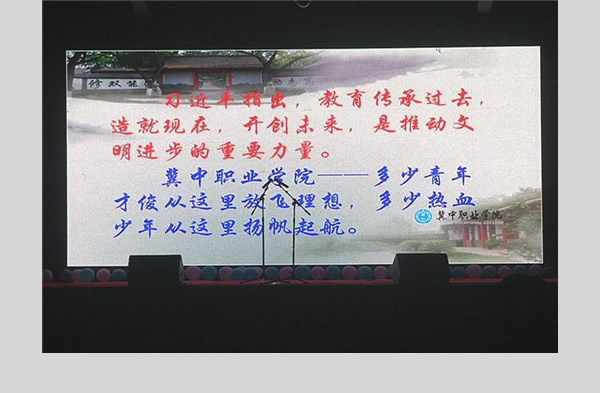 修双能
习近平指出，教育传承过去，
造就现在，开创未来，是推动文
明进步的重要力量。
冀中职业学院——多少青年
才俊从这里放飞理想，多少热血
少年从这里扬帆起航。
冀中职业学院